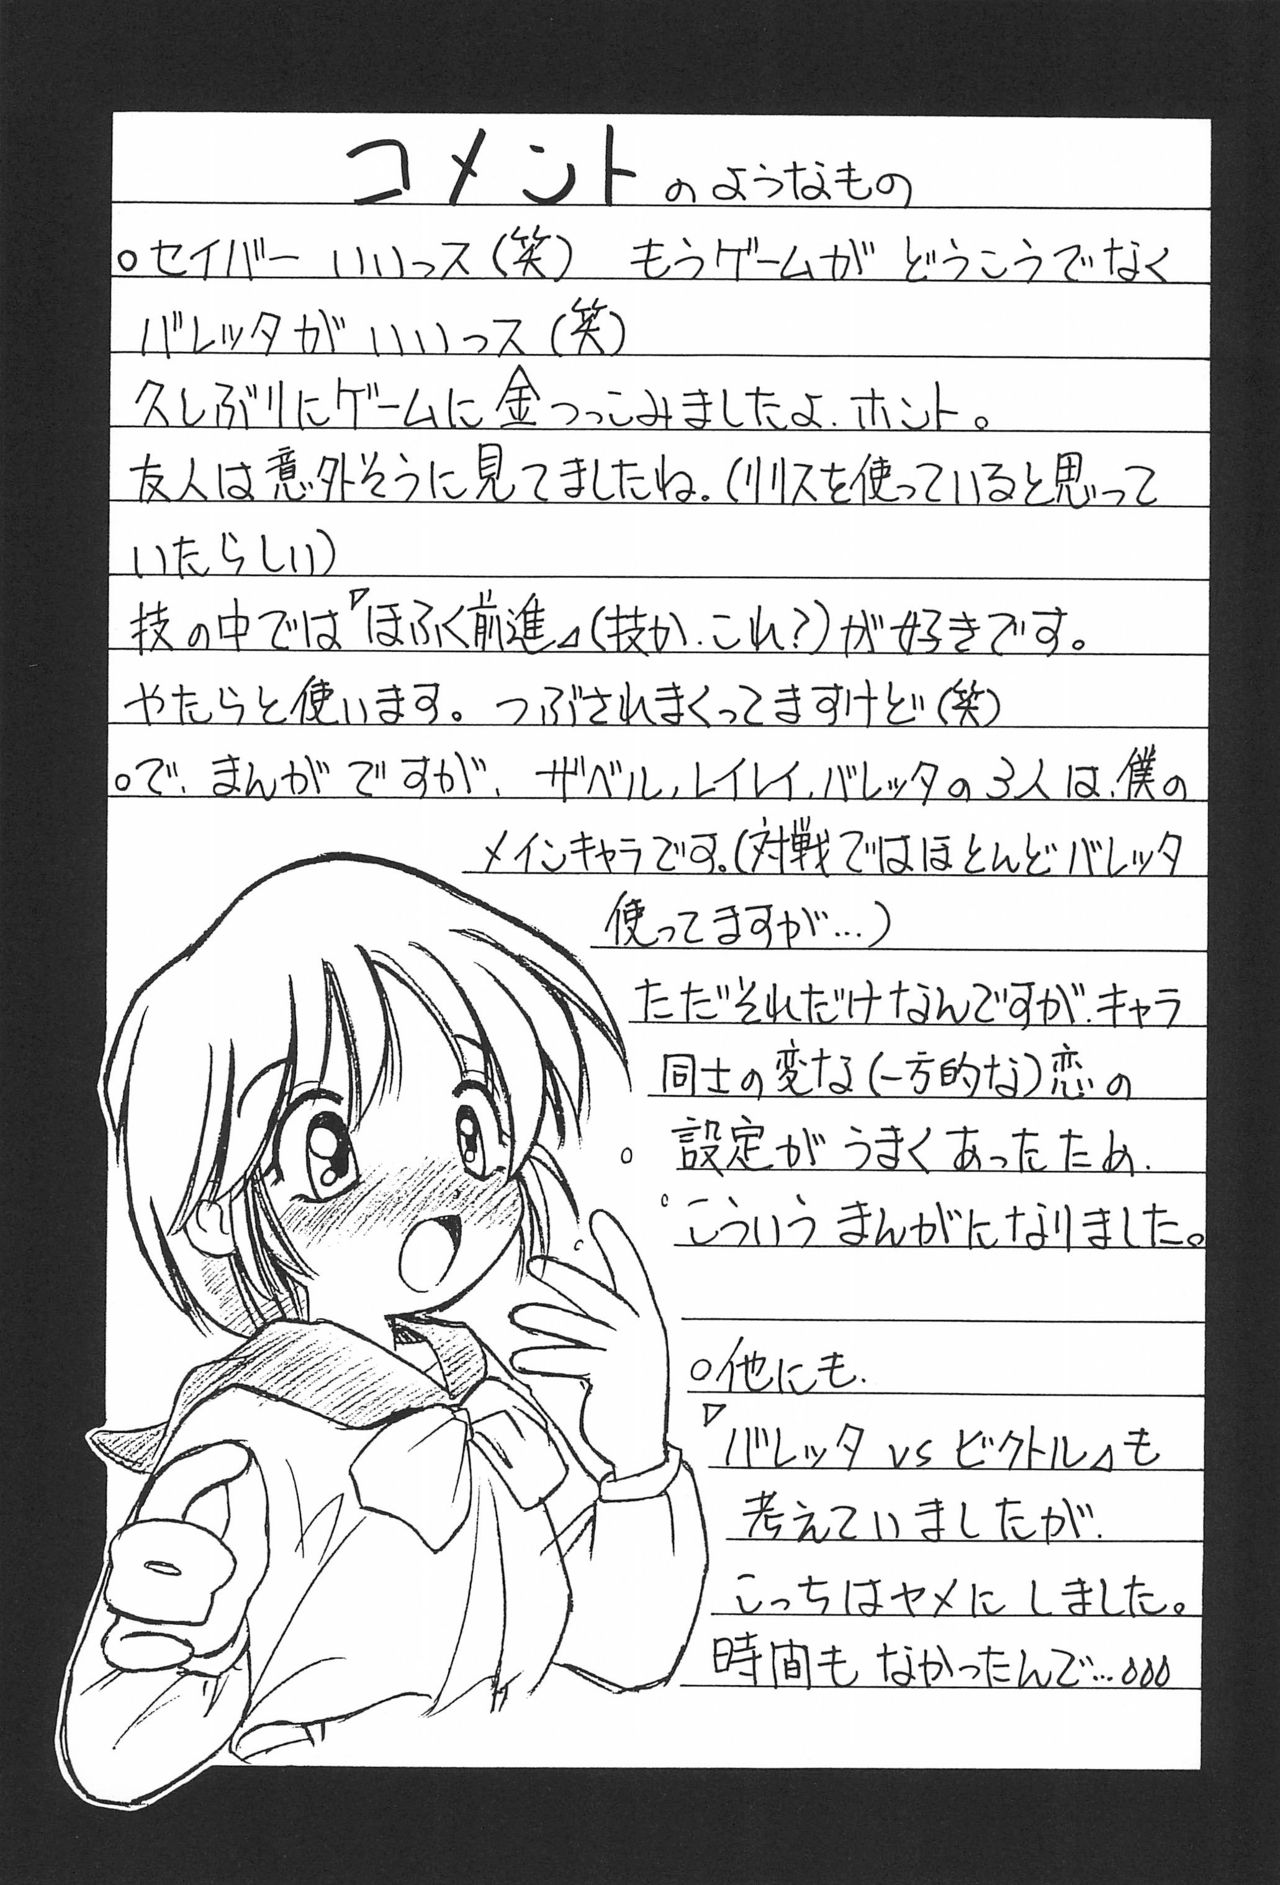 コメントのようなもの
○セイバー いいっス(笑) もうゲームがどうこうでなく
バレッタがいいっス(笑)
久しぶりにゲームに金つっこみましたよ、ホント。
友人は意外そうに見てましたね。(リリスを使っていると思って
いたらしい)
技の中では『ほふく前進』(技か、これ?)が好きです。
やたらと使います。つぶされまくってますけど(笑)
○で、まんがですが、ザベル、レイレイ、バレッタの3人は、僕の
メインキャラです。(対戦ではほとんどバレッタ
使ってますが…)
ただそれだけなんですが、キャラ
同士の変な(一方的な)恋の
設定がうまくあったため、
こういうまんがになりました。
○他にも、
『バレッタvsビクトル』も
考えていましたが、
こっちはヤメにしました。
時間もなかったんで…。。。